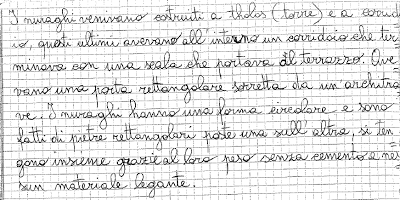 I nuraghi venivano costruiti a tholos (torre) e a corrid
io, questi ultimi avevano all'interno un corridoio che ter
minava con una scala che portava al terrazzo. Ave
vano una porta rettangolare sorretta da un architra
ve. I nuraghi hanno una forma circolare e sono
fatti di pietre rettangolari poste una sull'altra, si ten
gono insieme grazie al loro peso senza cemento e nes
sun materiale legante.